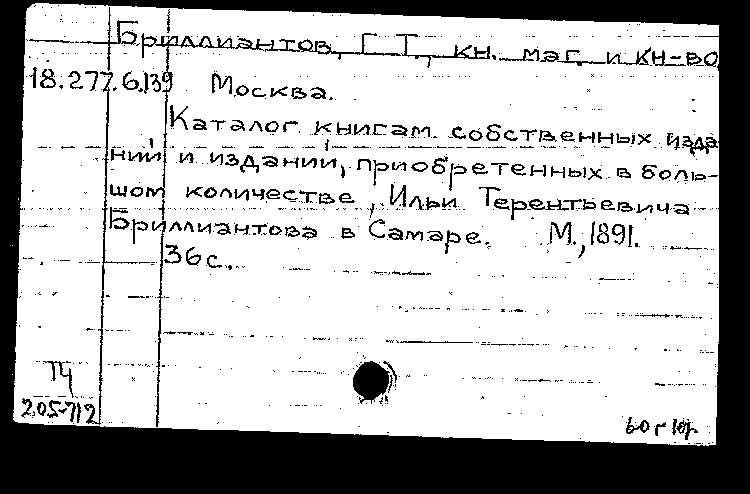 Бриллиантов, Г Т., кн. маг. и кн-во
18.277.6.139 Москва.
Каталог книгам собственных изда
ний и изданий, приобретенных в боль-
шом количестве, Ильи Терентьевича
Бриллиантова в Самаре. М., 1891.
36 с.
ТЧ
205-712